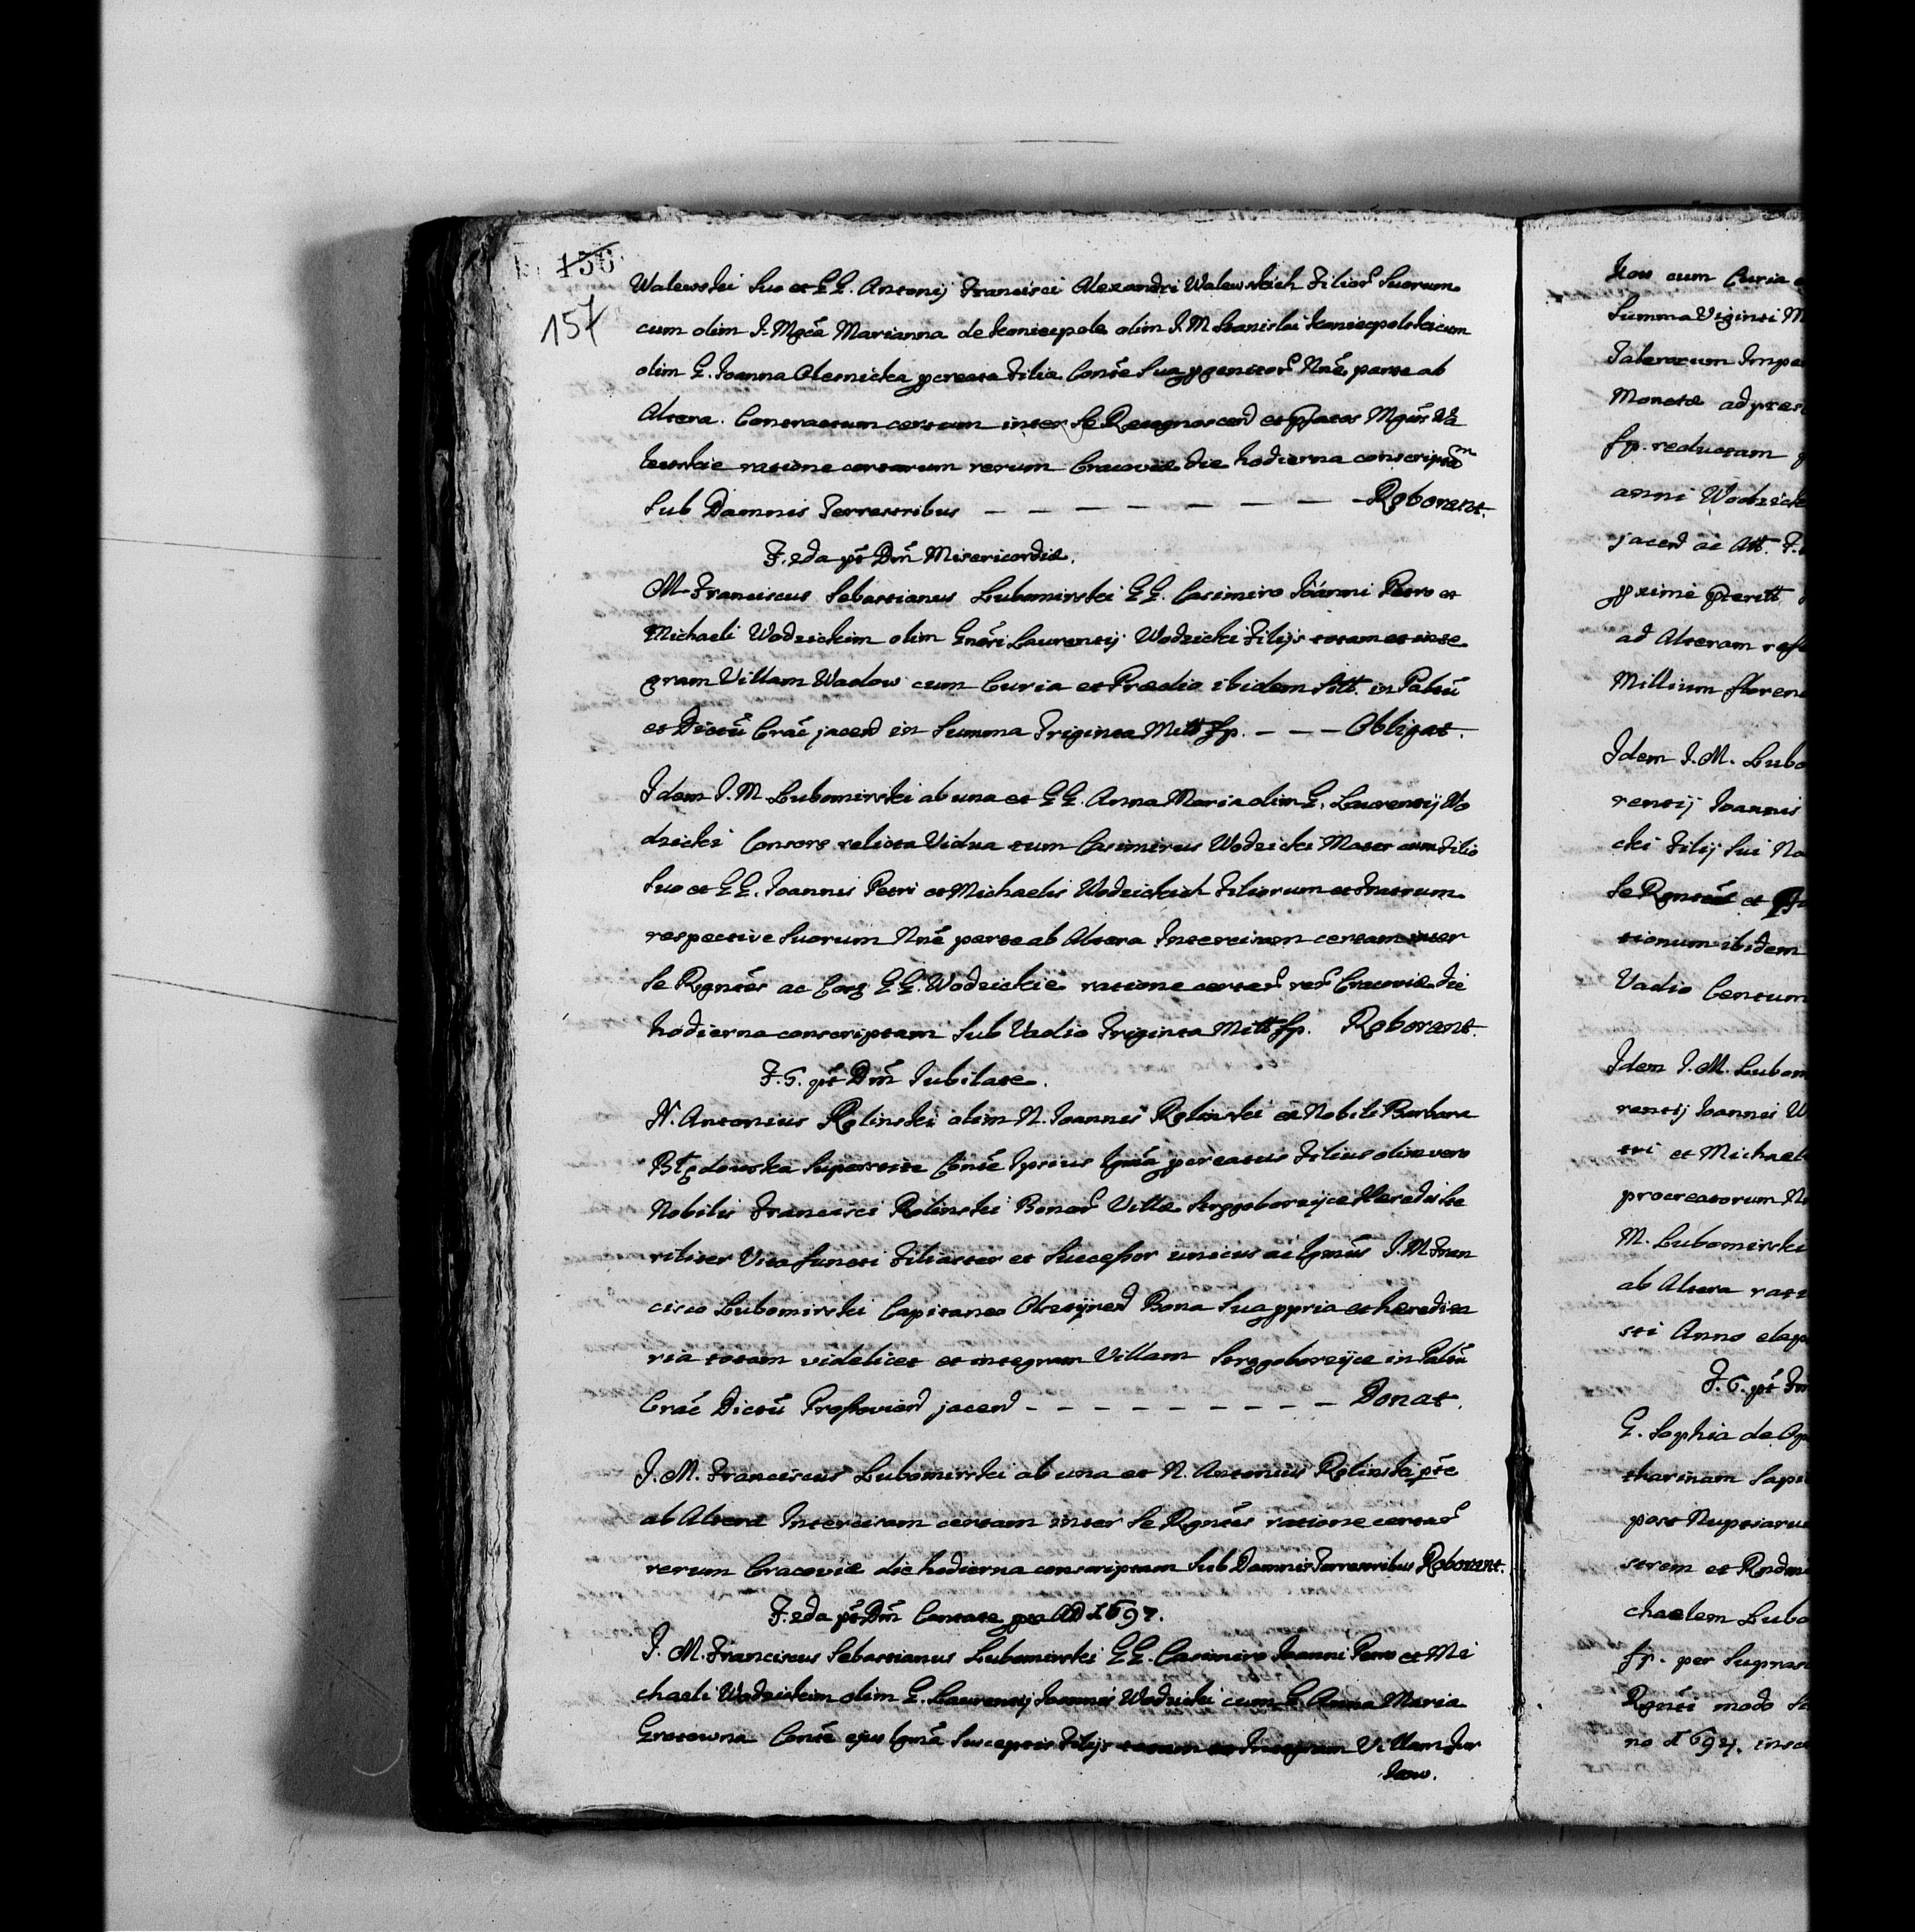 156
157
Walewski Suo et GG. Antonij Francisci Alexandri Walewskich Filior Suorum
cum olim J. Mgca Marianna de Koniecpole olim J. M Stanislai Koniecpolski cum
olim G. Joanna Olesnicka pcreata Filia Conte Sua pgenitor Nne parte ab
Altera. Contractum certum inter Se Recognoscend et Mgcos Wa
lewskie ratione certarum rerum Cracoviæ die hodierna conscriptum
Sub Damnis Terrestribus — — — — — — — Roborant.
F. 2da pt Dm Misericordiæ.
M Franciscus Sebastianus Lubomirski GG. Casimiro Joanni Petro et
Michaeli Wodzickim olim Gnersi Laurentij Wodzicki Filijs totam et inte
gram Villam Wadow cum Curia et Prædio ibidem Sitt. in Paltu
et Dictu Crac jacend in Summa Triginta Mill fp. — — — Obligat.
Idem J. M Lubomirski ab una et GG. Anna Maria olim G. Laurentij Wo
dzicki Consors relicta Vidua tum Casimirus Wodzicki Mater cum Filio
Suo et GG. Joannis Petri et Michaelis Wodzickich Filiorum et Fratrum
respective Suorum Nne parte ab Altera Intercisam certam inter
Se Rgntes ac GG. Wodzickie ratione certar rer Cracoviæ die
hodierna conscriptam Sub Vadio Triginta Mill fp. Roborant.
F. 6. pt Dm Jubilate.
N. Antonius Rolinski olim N. Joannis Rolinski ex Nobili Barbara
Błędowska Superstite Conte Ipsius Lgma pcreatus Filius olim vero
Nobilis Francisci Rolinski Bonor Villæ Stręgoborzyce Heredis Ste
riliter Vita functi Filiaster et Successor unicus ac Lgmus J. M Fran
cisco Lubomirski Capitaneo Olsztynen Bona Sua ppria et heredita
ria totam videlicet et integram Villam Stręgoborzyce in Paltu
Crac Dictu Proszovien jacend — — — — — — — — — Donat.
J. M. Franciscus Lubomirski ab una et N. Antonius Rolinski pte
ab Altera Intercisam certam inter Se Rgntes ratione certar
rerum Cracoviæ die hodierna conscriptam Sub Damnis Terrestribus Roborant.
F. 2da pt Dm Cantate pro AD 1697.
J. M. Franciscus Sebastianus Lubomirski GG. Casimiro Joanni Petro et Mi
chaeli Wodzickim olim G. Laurentij Joannis Wodzicki cum G Anna Maria
Gratowna Conte ejus Lgma Susceptis Filijs totam et Integram Villam
Kow cum Curia
Summa Viginti M
Talerorum Impe
Monetæ ad
fp. reductam
anni Wodzick
jacend ac Att. F.
ad Alteram
Millium floren
Idem J. M. Lubo
rentij Joannis
cki Filij Sui No
Se Rgntes et
tionum ibidem
Vadio Centum
Idem J. M. Lubom
rentij Joannei W
tri et Michael
procreatorum N
M. Lubomirski
ab Altera rati
sti Anno elap
F. 6. pt
G. Sophia de
tharinam Sapi
post Nuptiarum
strem et
chaelem Lubo
fp. per Supras
Rgnti modo
no 1694. insc